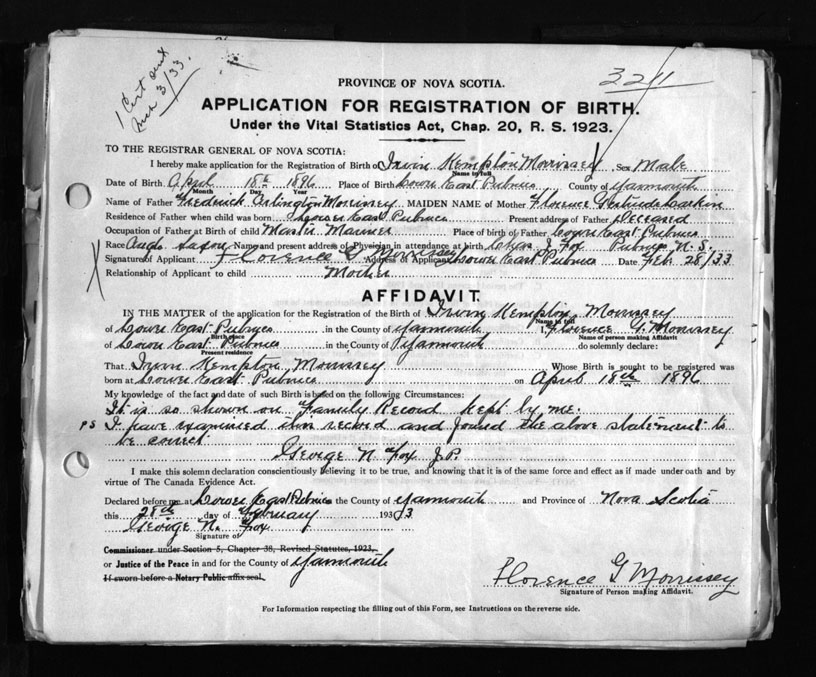 1 Cert sent
Mch 3/33.
3211
PROVINCE OF NOVA SCOTIA.
APPLICATION FOR REGISTRATION OF BIRTH.
Under the Vital Statistics Act, Chap. 20, R. S. 1923.
TO THE REGISTRAR GENERAL OF NOVA SCOTIA:
I hereby make application for the Registration of Birth of Irvin Kempton Morrissey Sex Male
Name in full
Date of Birth April 18th 1896 Place of Birth Lower East Pubnico County of Yarmouth
Month Day Year
Name of Father Frederick Arlington Morrissey MAIDEN NAME of Mother Florence Gertrude Larkin
Residence of Father when child was born Lower East Pubnico Present address of Father Deceased
Occupation of Father at Birth of child Master Mariner Place of birth of Father Lower East Pubnico
Race Anglo Saxon Name and present address of Physician in attendance at birth Chas J. Fox Pubnico N. S.
Signature of Applicant Florence G Morrissey Address of Applicant Lower East Pubnico Date Feb 28/33
Relationship of Applicant to child Mother
AFFIDAVIT.
IN THE MATTER of the application for the Registration of the Birth of Irvin Kempton Morrissey
Name in full
of Lower East Pubnico in the County of Yarmouth I, Florence G. Morrissey
Birth place Name of person making Affidavit
of Lower East Pubnico in the County of Yarmouth do solemnly declare:
Present residence
That Irvin Kempton Morrissey Whose Birth is sought to be registered was
born at Lower East Pubnico on April 18th 1896
My knowledge of the fact and date of such Birth is based on the following Circumstances:
It is so shown on Family Record kept by me.
PS I have examined this record and found the above statement to
be correct
George N Fox J.P.
I make this solemn declaration conscientiously believing it to be true, and knowing that it is of the same force and effect as if made under oath and by
virtue of The Canada Evidence Act.
Declared before me at Lower East Pubnico the County of Yarmouth and Province of Nova Scotia
this 28th day of February 1933
George N. Fox
Signature of
Commissioner under Section 5, Chapter 38, Revised Statutes, 1923,
or Justice of the Peace in and for the County of Yarmouth
If sworn before a Notary Public affix seal.
Florence G Morrissey
Signature of Person making Affidavit.
For Information respecting the filling out of this Form, see Instructions on the reverse side.